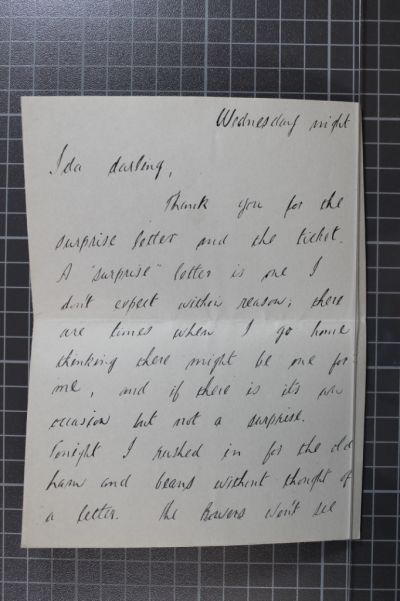 Wednesday night
Ida darling,
Thank you for the
surprise letter and the ticket.
A "surprise" letter is one I
don't expect within reason; there
are times when I go home
thinking there might be one for
me, and if there is it's an
occasion but not a surprise.
Tonight I rushed in for the old
ham and beans without thought of
a letter. The Bowers won't see